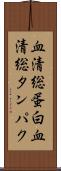 血清総蛋白血
清総タンパク